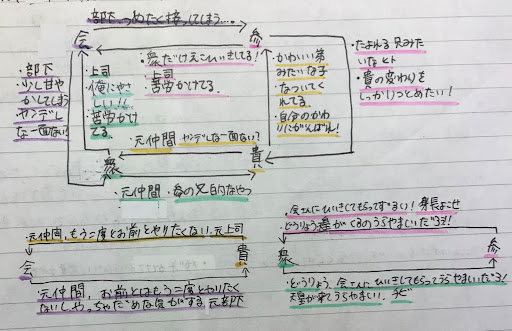 部下 つめたく接ってしまう…。
会
参
・衆だけえこひいきしてる!
上司
苦労かけてる
・部下
少し甘や
かしてしまう
ヤンデレ
な一面ない?
・上司
・俺にやさ
しい!!
・苦労かけ
てる
・かわいい弟
みたいな子
・なついてく
れてる
・自分のかわ
りにがんばれ!
・たよれる兄みた
いなヒト
・貴の変わりを
しっかりつとめたい!
・元仲間 ヤンデレな一面ない?
衆
貴
・元仲間 ・参の兄的なやつ
・元仲間、もう二度とお前とやりたくない、元上司
会
貴
・元仲間、お前とはもう二度とやりたく
ないしやっちゃだめな気がする 元部下
・会さんにひいきしてもらってずるい! 身長よこせ
どうりょう 舞がくるのうらやましいだろ!
衆
参
・どうりょう、会さんにひいきしてもらってうらやましいだろ!
が来てうらやましい、チビ